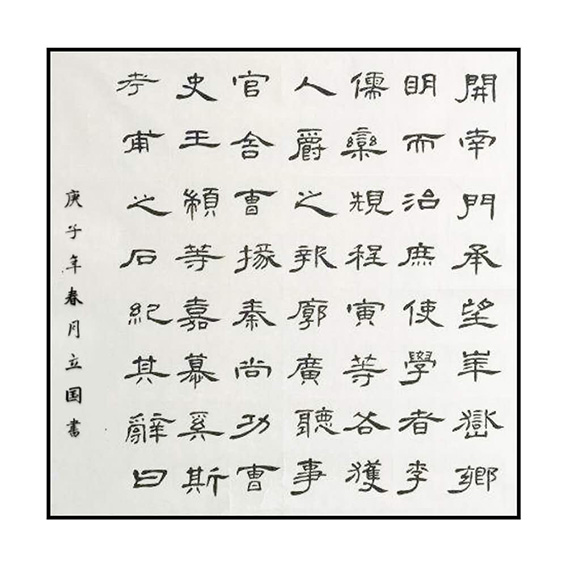 開南門承望崋嶽鄉
明而治庶使學者李
儒欒規程寅等各獲
人爵之報廓廣聽事
官舍曹掾秦尚功曹
史王顓等嘉慕奚斯
考甫之石紀其辭曰
庚子年春月立国書